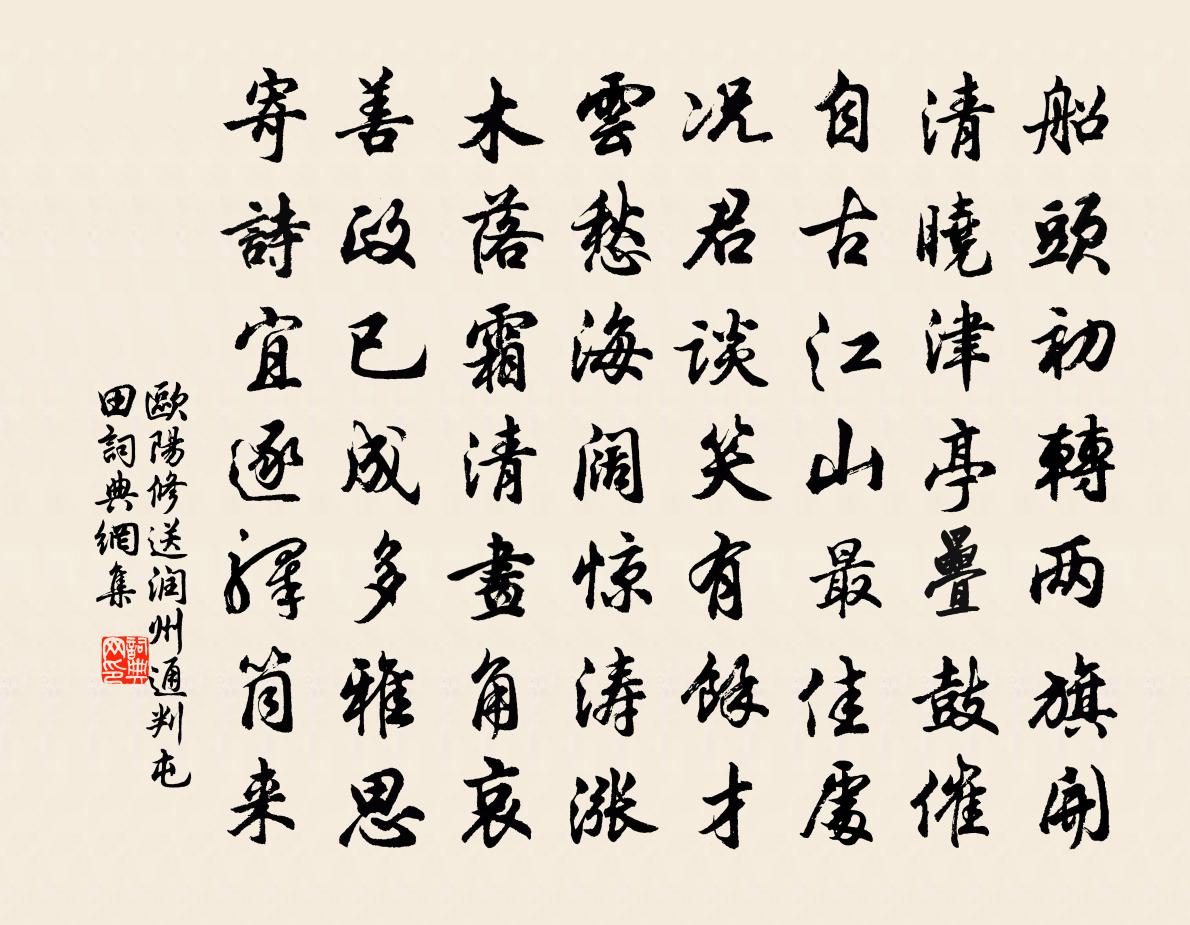 船頭初轉两旗開
清曉津亭疊鼓催
自古江山最佳處
况君谈笑有餘才
雲愁海阔惊涛涨
木落霜清畫角哀
善政已成多雅思
寄詩宜逐驛筒来
歐陽修送润州通判屯
田詞典網集
詞典网印